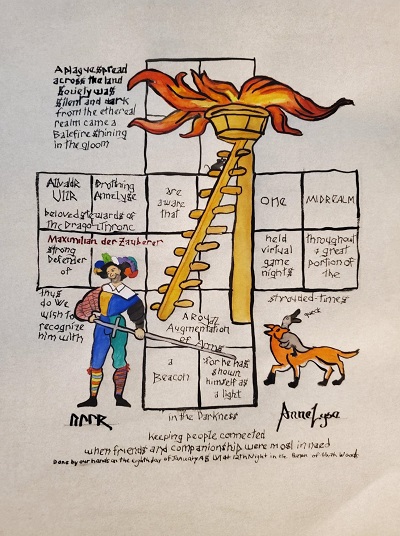 A plague spread
across the land
Society was
silent and dark
from the ethereal
realm came a
Balefire shining
in the gloom
Drothing
AnneLyse
are
aware
that
one
MIDREALM
beloved stewards of
the Dragon Throne
Maximilian der Zauberer
strong
Defender
of
held
virtual
game
nights
throughout
a great
portion of
the
thus
do we
wish to
recognize
him with
shrouded-times
quack
A Royal
Augmentation
of Arms
a
Beacon
for he has
shown
himself as
a light
in the Darkness
keeping people connected
when friends and companionship were most in need
Done by our hands on the eighth day of January AS LVI at 12th Night in the